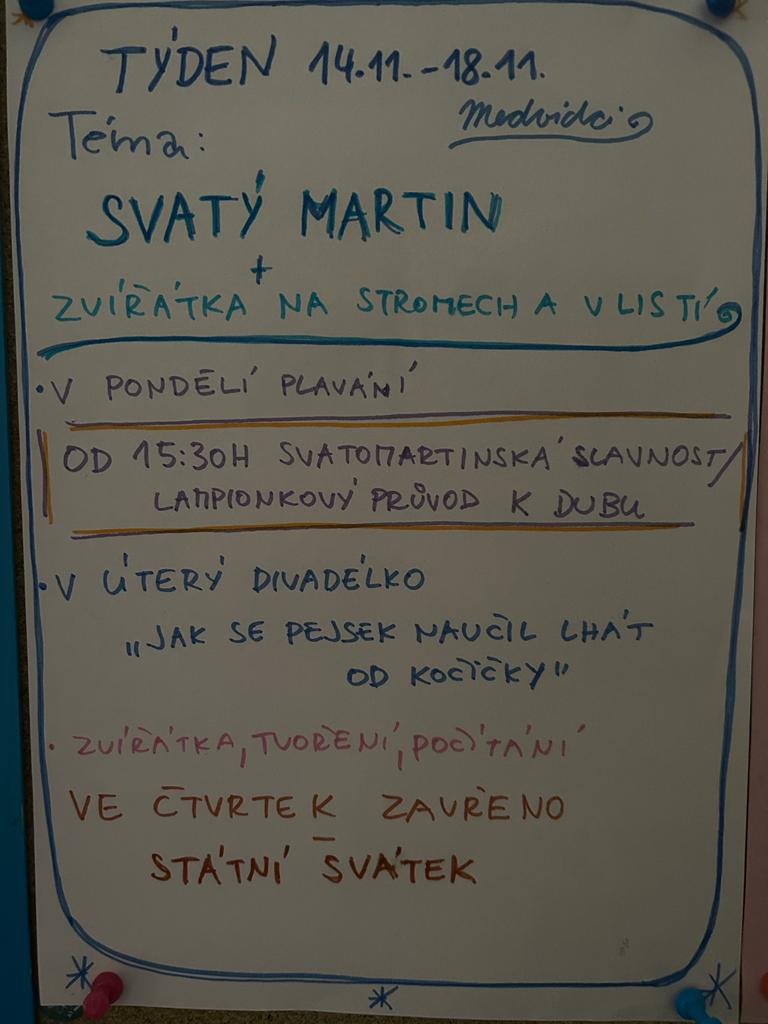 TÝDEN 14.11.-18.11.
Medvídci
Téma:
SVATÝ MARTIN
+
ZVÍŘÁTKA NA STROMECH A V LISTÍ
• V PONDĚLÍ PLAVÁNÍ
OD 15:30H SVATOMARTINSKÁ SLAVNOST/
LAMPIONKOVÝ PRŮVOD K DUBU
• V ÚTERÝ DIVADÉLKO
„JAK SE PEJSEK NAUČIL LHÁT
OD KOČIČKY"
• ZVÍŘÁTKA, TVOŘENÍ, POČÍTÁNÍ
VE ČTVRTEK ZAVŘENO
–
STÁTNÍ SVÁTEK